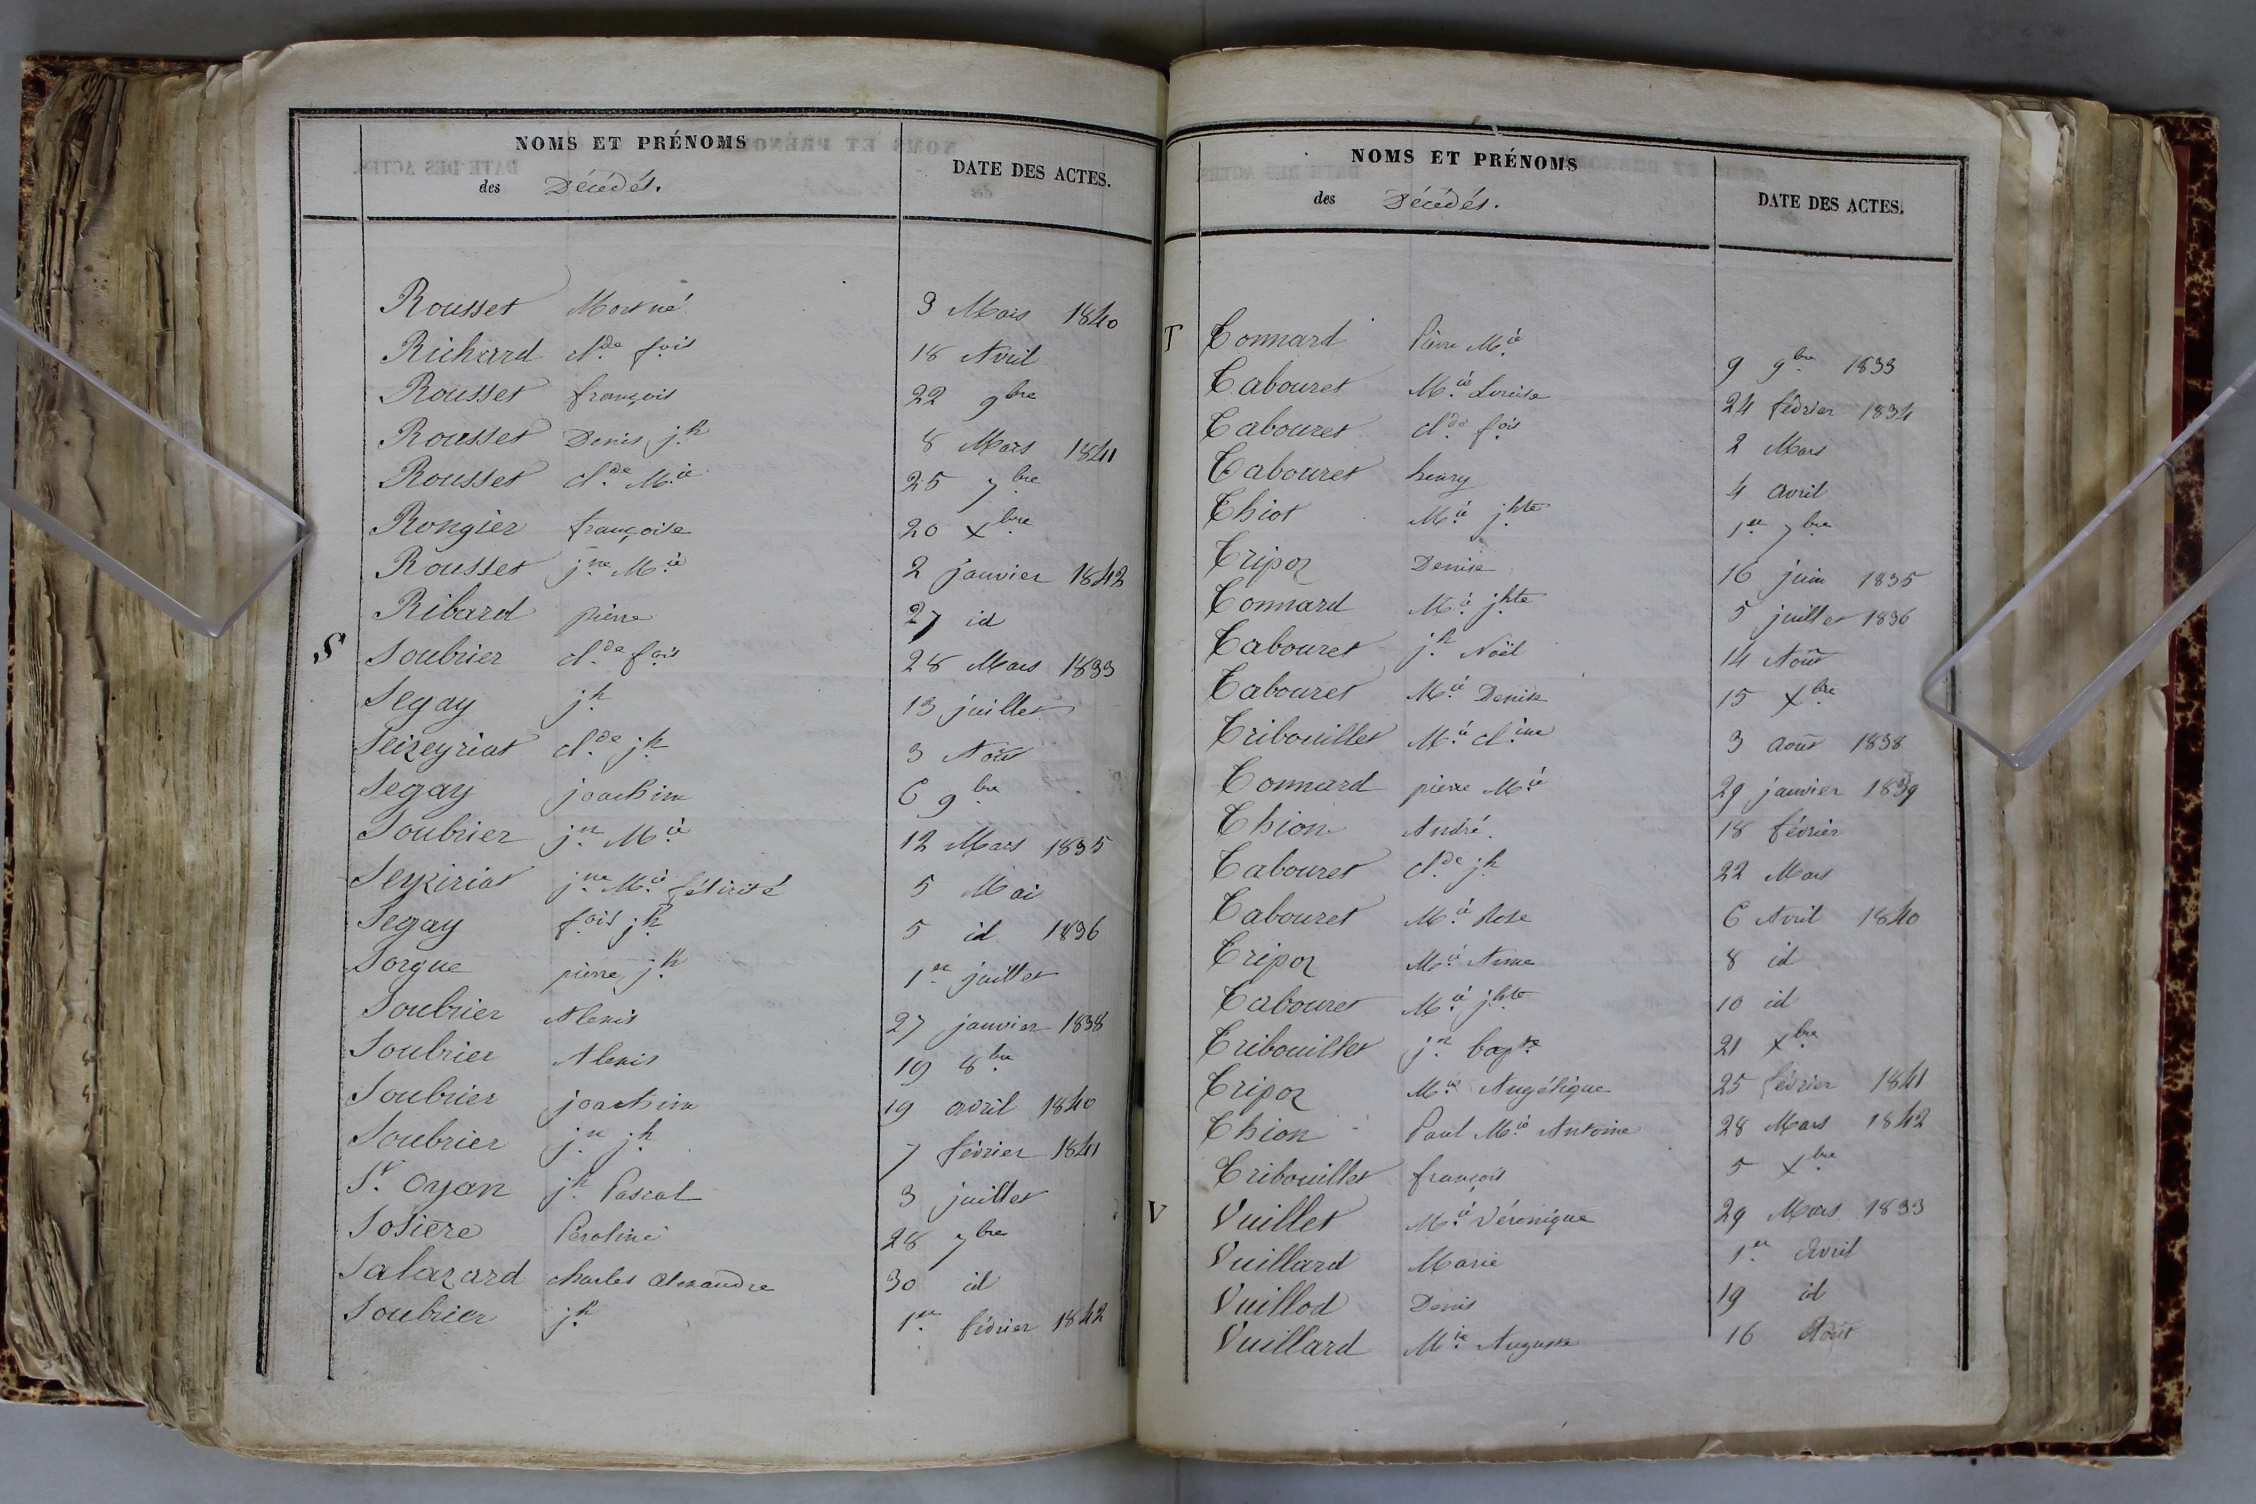 NOMS ET PRÉNOMS
des Décédés.
DATE DES ACTES.
Rousset Mort né 3 Mars 1840
Richard cl.de f.ois 18 Avril
Rousset françois 22 9bre
Rousset Denis j.h 8 Mars 1841
Rousset cl.de M.ie 25 7bre
Rongier françoise 20 Xbre
Rousset j.ne M.ie 2 janvier 1842
Ribard pierre 27 id
S Soubrier cl.de f.ois 28 Mars 1833
Segay j.h 13 juillet
Seizeyriat cl.de j.h 3 Août
Segay joachim 6 9bre
Soubrier j.n M.ie 12 Mars 1835
Seykiriat j.ne M.ie félicité 5 Mai
Segay f.ois j.h 5 id 1836
Sorgue pierre j.h 1.er juillet
Soubrier Alexis 27 janvier 1838
Soubrier Alexis 19 8bre
Soubrier joachim 19 avril 1840
Soubrier j.n j.h 7 février 1841
S.t Oyan j.h Pascal 3 juillet
Sosière 28 7bre
Salazard charles alexandre 30 id
Soubrier j.h 1.er février 1842
NOMS ET PRÉNOMS
des Décédés.
DATE DES ACTES.
T Tonnard Pierre M.ie 9 9bre 1833
Tabouret M.ie Louise 24 février 1834
Tabouret cl.de f.ois 2 Mars
Tabouret henry 4 avril
Thiot M.ie j.hte 1.er 7bre
Tripoz Denise 16 juin 1835
Tonnard M.ie j.hte 5 juillet 1836
Tabouret j.h Noël 14 Août
Tabouret M.ie Denise 15 Xbre
Tribouillet M.ie cl.ine 3 août 1838
Tonnard pierre M.ie 29 janvier 1839
Thion André 18 février
Tabouret cl.de j.h 22 Mars
Tabouret M.ie Rose 6 Avril 1840
Tripoz M.ie Anne 8 id
Tabouret M.ie j.hte 10 id
Tribouillet j.n bap.te 21 Xbre
Tripoz M.ie Angélique 25 février 1841
Thion Paul M.ie Antoine 28 Mars 1842
Tribouillet françois 5 Xbre
V Vuillet M.ie Véronique 29 Mars 1833
Vuillard Marie 1.er Avril
Vuillod Denis 19 id
Vuillard M.ie Auguste 16 Août